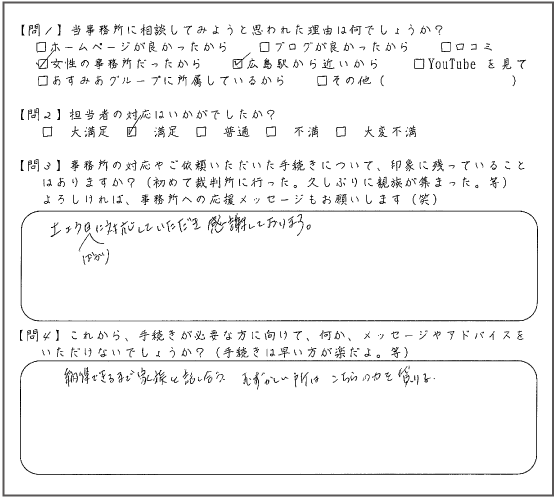 【問1】当事務所に相談してみようと思われた理由は何でしょうか？
□ホームページが良かったから □ブログが良かったから □口コミ
☑女性の事務所だったから ☑広島駅から近いから □YouTube を見て
□あすみあグループに所属しているから □その他（ ）
【問2】担当者の対応はいかがでしたか？
□ 大満足 ☑ 満足 □ 普通 □ 不満 □ 大変不満
【問3】事務所の対応やご依頼いただいた手続きについて、印象に残っていること
はありますか？（初めて裁判所に行った。久しぶりに親族が集まった。等）
よろしければ、事務所への応援メッセージもお願いします（笑）
土日に対応していただき 感謝しております。
ばかり
【問4】これから、手続きが必要な方に向けて、何か、メッセージやアドバイスを
いただけないでしょうか？（手続きは早い方が楽だよ。等）
納得できるまで家族と話し合う むずかしい所は こちらの力を借りる。